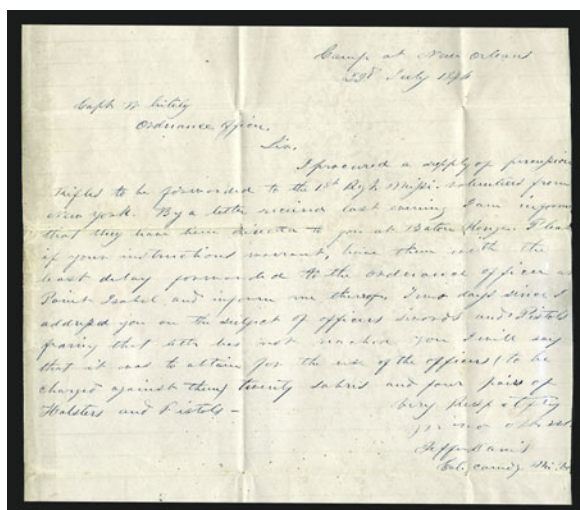 Camp at New Orleans
22d July 1846
Capt W hitely
Ordnance Officer,
Sir,
I procured a supply of percussion
rifles to be forwarded to the 1st Regt Missi. volunteers from
New York. By a letter received last evening I am inform
that they have been directed to you at Baton Rouge. Pleas
if your instructions warrant, have them with the
least delay forwarded to the ordnance officer at
Point Isabel and inform me thereof. Two days since I
addressed you on the subject of officers swords and Pistols
fearing that letter has not reached you I will say
that it was to obtain for the use of the officers (to be
charged against them) twenty sabres and four pairs of
Holsters and Pistols —
Very Respectfly
Jeffn Davis
Col. comdg